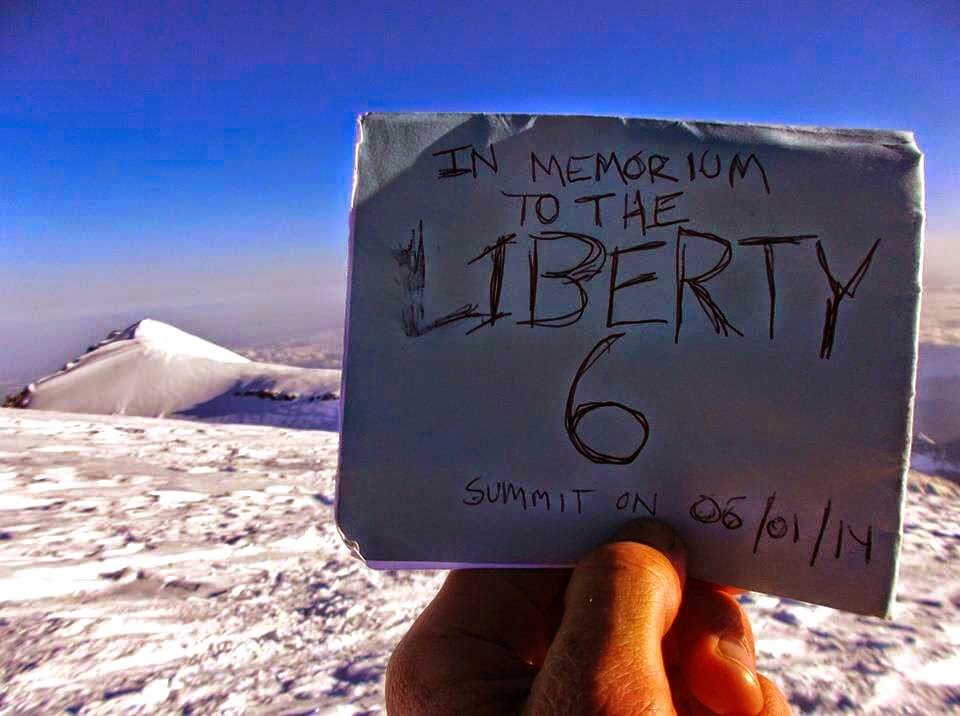 IN MEMORIUM
TO THE
LIBERTY
6
SUMMIT ON 06/01/14